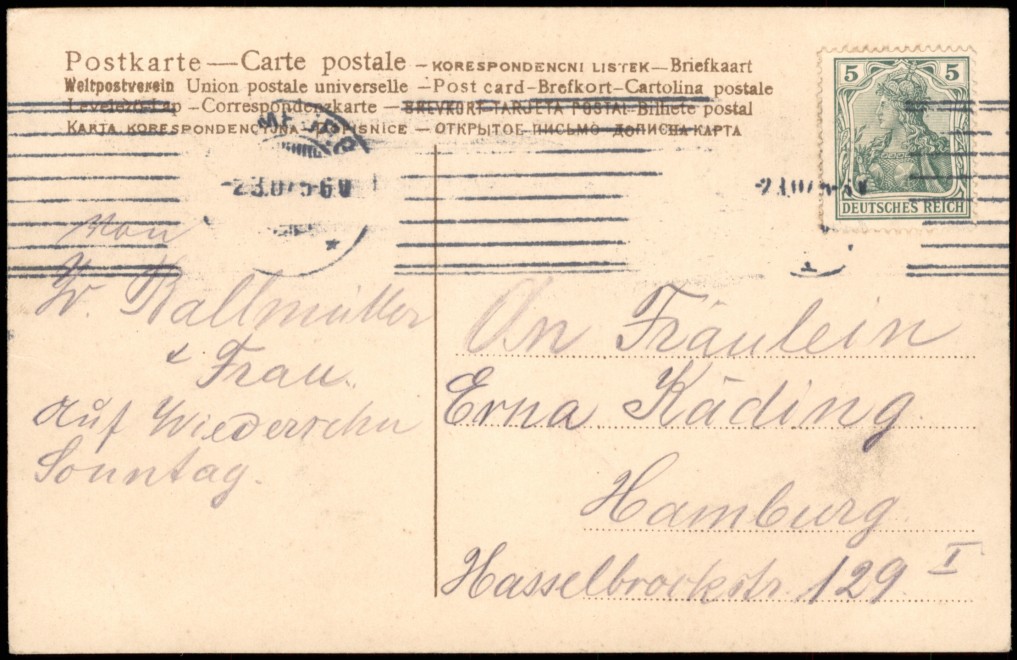 Postkarte — Carte postale – KORESPONDENCNI LISTEK — Briefkaart
Weltpostverein Union postale universelle – Post card – Brefkort – Cartolina postale
Levelezőlap – Correspondenzkarte – BREVKORT – TARJETA POSTAL – Bilhete postal
KARTA KORESPONDENCYJNA – DOPISNICE – ОТКРЫТОЕ ПИСЬМО – ДОПИСНА КАРТА
5 5
DEUTSCHES REICH
Von
Kallmüller
& Frau.
Auf Wiedersehn
Sonntag.
An Fräulein
Erna Käding
Hamburg
Hasselbrookstr. 129 I